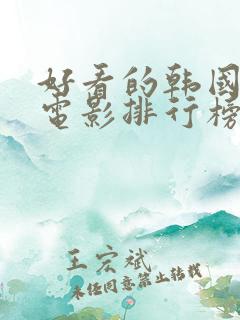 好看的韩国
电影排行榜
王宏斌
未经同意禁止转载